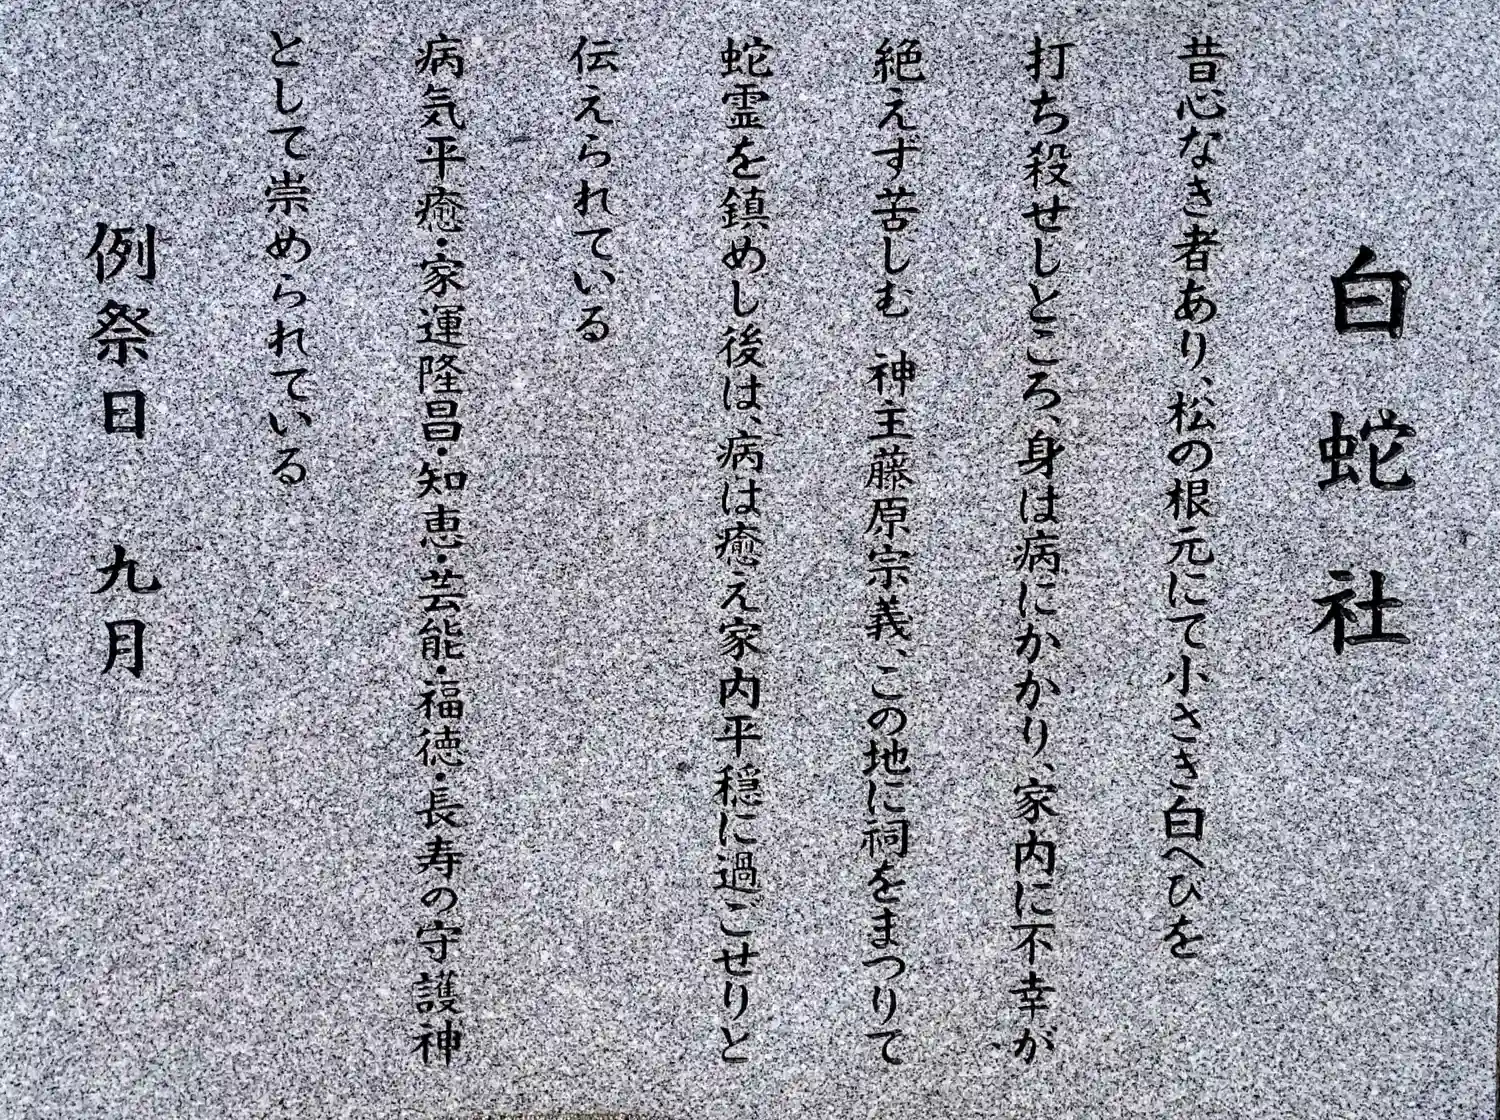 白蛇社
昔心なき者あり、松の根元にて小さき白へびを
打ち殺せしところ、身は病にかかり、家内に不幸が
絶えず苦しむ　神主藤原宗義、この地に祠をまつりて
蛇霊を鎮めし後は、病は癒え家内平穏に過ごせりと
伝えられている
病気平癒・家運隆昌・知恵・芸能・福徳・長寿の守護神
として崇められている
例祭日　九月